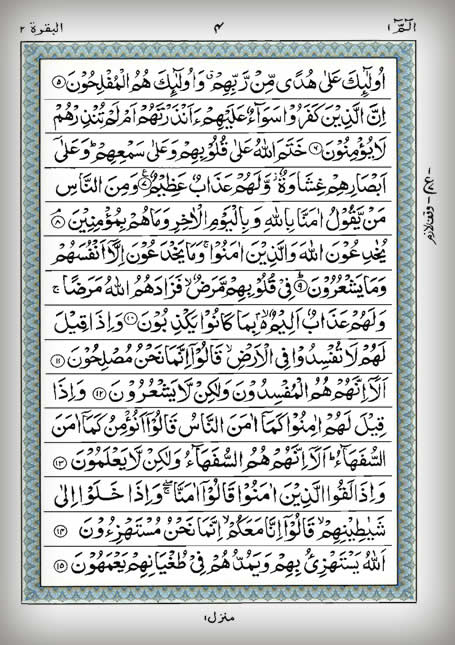 الٓمّٓ ١
٤
البقرة ٢
اُولٰٓئِكَ عَلٰى هُدًى مِّنْ رَّبِّهِمْ ۙ وَاُولٰٓئِكَ هُمُ الْمُفْلِحُوْنَ ۝۵
اِنَّ الَّذِيْنَ كَفَرُوْا سَوَآءٌ عَلَيْهِمْ ءَاَنْذَرْتَهُمْ اَمْ لَمْ تُنْذِرْهُمْ
لَا يُؤْمِنُوْنَ ۝۶ خَتَمَ اللّٰهُ عَلٰى قُلُوْبِهِمْ وَعَلٰى سَمْعِهِمْ ؕ وَعَلٰٓى
اَبْصَارِهِمْ غِشَاوَةٌ ۚ وَّلَهُمْ عَذَابٌ عَظِيْمٌ ۝۷ وَمِنَ النَّاسِ
مَنْ يَّقُوْلُ اٰمَنَّا بِاللّٰهِ وَبِالْيَوْمِ الْاٰخِرِ وَمَا هُمْ بِمُؤْمِنِيْنَ ۝۸
يُخٰدِعُوْنَ اللّٰهَ وَالَّذِيْنَ اٰمَنُوْا ۚ وَمَا يَخْدَعُوْنَ اِلَّآ اَنْفُسَهُمْ
وَمَا يَشْعُرُوْنَ ۝۹ فِيْ قُلُوْبِهِمْ مَّرَضٌ ۙ فَزَادَهُمُ اللّٰهُ مَرَضًا ۚ
وَلَهُمْ عَذَابٌ اَلِيْمٌۢ ۙ بِمَا كَانُوْا يَكْذِبُوْنَ ۝۱۰ وَاِذَا قِيْلَ
لَهُمْ لَا تُفْسِدُوْا فِى الْاَرْضِ ۙ قَالُوْٓا اِنَّمَا نَحْنُ مُصْلِحُوْنَ ۝۱۱
اَلَآ اِنَّهُمْ هُمُ الْمُفْسِدُوْنَ وَلٰكِنْ لَّا يَشْعُرُوْنَ ۝۱۲ وَاِذَا
قِيْلَ لَهُمْ اٰمِنُوْا كَمَآ اٰمَنَ النَّاسُ قَالُوْٓا اَنُؤْمِنُ كَمَآ اٰمَنَ
السُّفَهَآءُ ؕ اَلَآ اِنَّهُمْ هُمُ السُّفَهَآءُ وَلٰكِنْ لَّا يَعْلَمُوْنَ ۝۱۳
وَاِذَا لَقُوا الَّذِيْنَ اٰمَنُوْا قَالُوْٓا اٰمَنَّا ۚۖ وَاِذَا خَلَوْا اِلٰى
شَيٰطِيْنِهِمْ ۙ قَالُوْٓا اِنَّا مَعَكُمْ ۙ اِنَّمَا نَحْنُ مُسْتَهْزِءُوْنَ ۝۱۴
اَللّٰهُ يَسْتَهْزِئُ بِهِمْ وَيَمُدُّهُمْ فِيْ طُغْيَانِهِمْ يَعْمَهُوْنَ ۝۱۵
وقف لازم
منزل ١